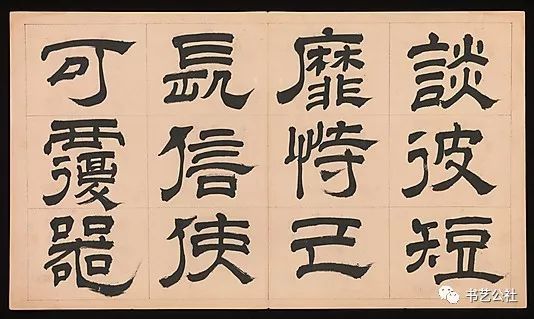 談彼短
靡恃己
長信使
可覆器
书艺公社